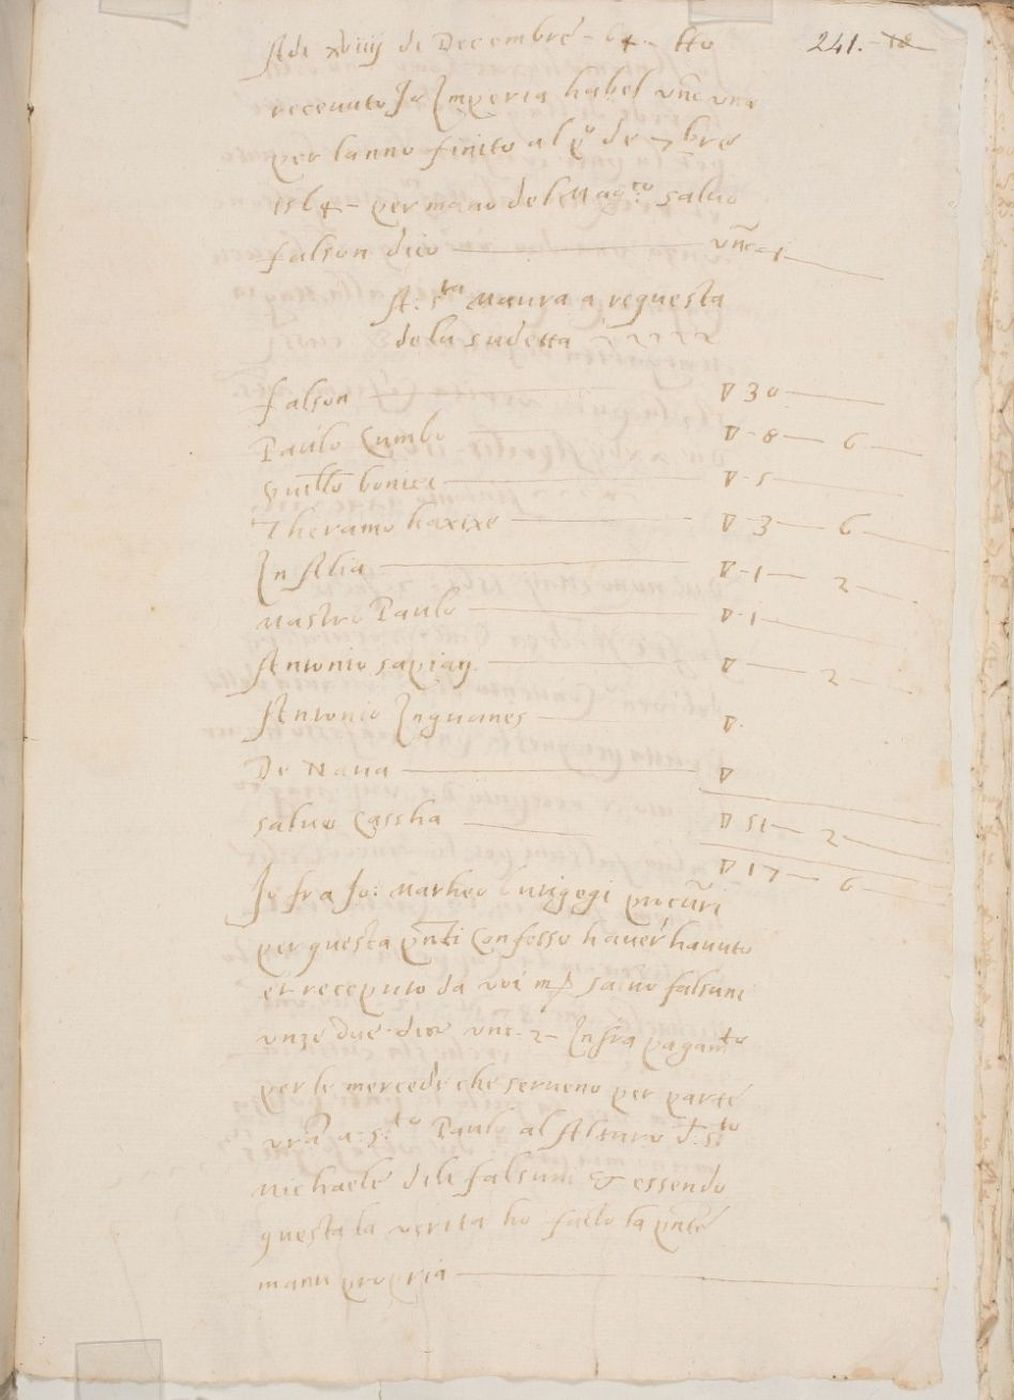 241. 18
Adi xviiij di Decembre - 64 - Ho
receuuto Io Imperia habel vnc vna
per lanno finito al po de 7bre
1564 - per mano del Magco saluo
falson dico vnc - 1
A: sta Maura a requesta
dela sudetta
falson ∇ 30
Paulo Cumbo ∇ - 8 - 6
bonici ∇ - 5
Theramo haxixe ∇ - 3 - 6
In Alia ∇ - 1 - 2
mastro Paulo ∇ - 1
Antonio sapian ∇ - 2
Antonio Inguanes ∇
De Naua ∇
saluo Cassha ∇ 51 - 2
∇ 17 - 6
Io fra Io: Matheo procuri
per questa pnti Confesso hauer hauuto
et receputo da voi saluo falsuni
vnze due dice vnc - 2 - Infra pagamto
per le mercede che serueno per parte
vra a: s:to Paulo al Altaro d: sto
Michaele dili falsuni & essendo
questa la verita ho fatto la pnte
manu propria